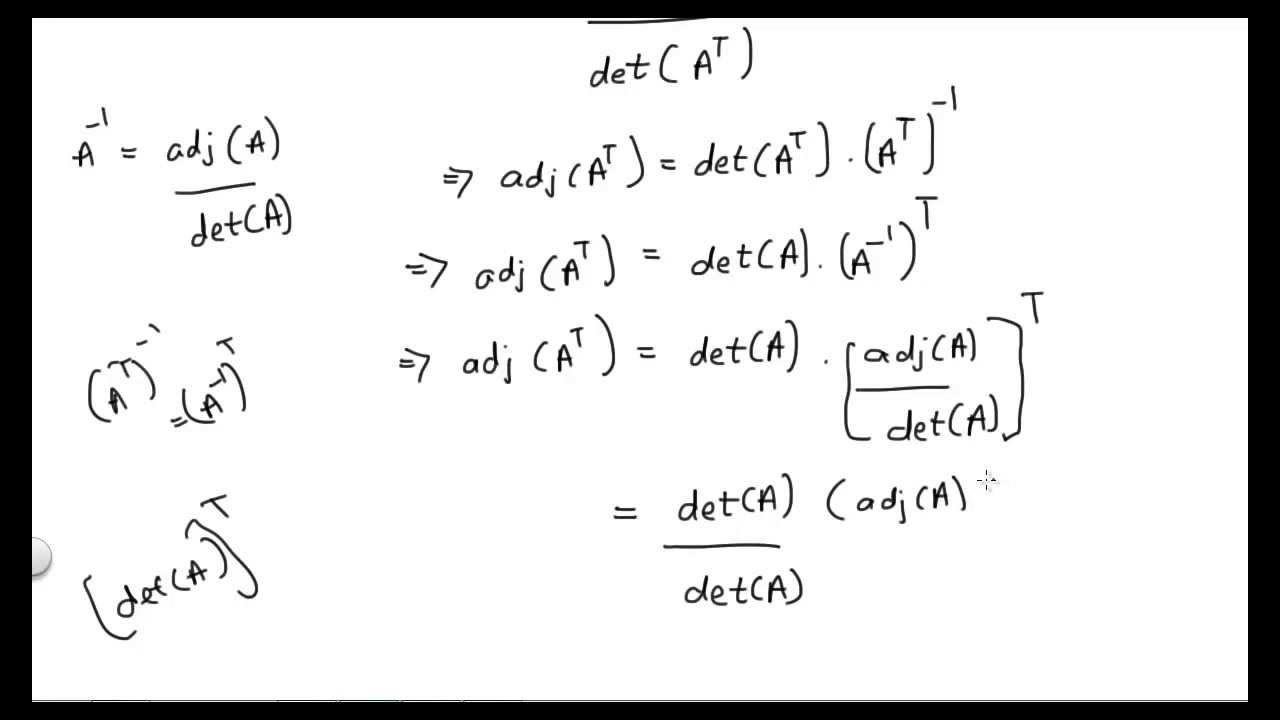 det(A^T)
A^-1 = adj(A)
det(A)
=> adj(A^T) = det(A^T) . (A^T)^-1
=> adj(A^T) = det(A) . (A^-1)^T
=> adj(A^T) = det(A) . [adj(A)
det(A)]^T
(A^T)^-1 = (A^-1)^T
= det(A) (adj(A)
det(A)
[det(A)]^T